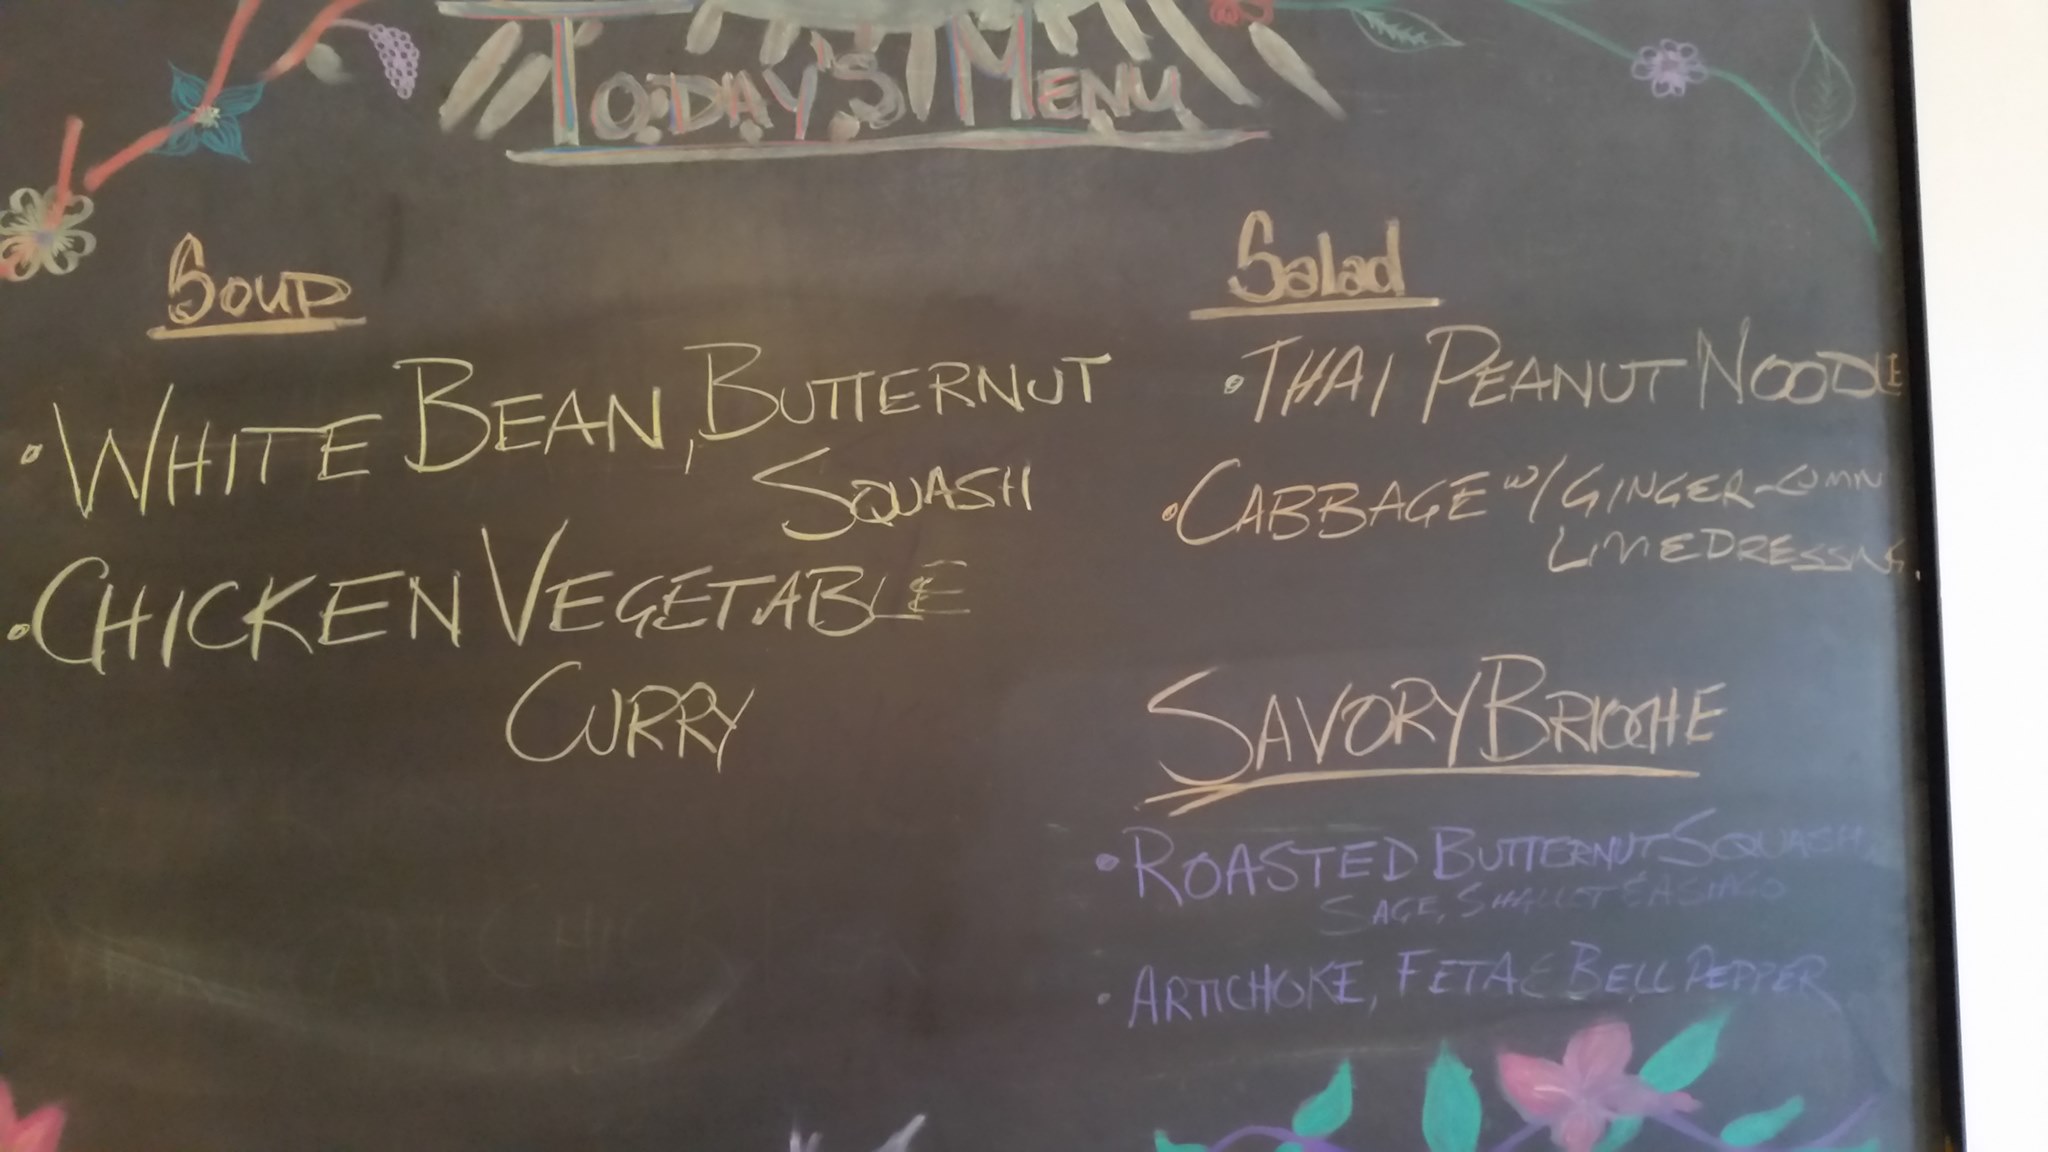 TODAY'S MENU
Soup
• WHITE BEAN, BUTTERNUT
SQUASH
• CHICKEN VEGETABLE
CURRY
Salad
• THAI PEANUT NOODLE
• CABBAGE w/ GINGER-CUMIN
LIME DRESSING.
SAVORY BRIOCHE
• ROASTED BUTTERNUT SQUASH,
SAGE, SHALLOT & ASIAGO
• ARTICHOKE, FETA & BELL PEPPER